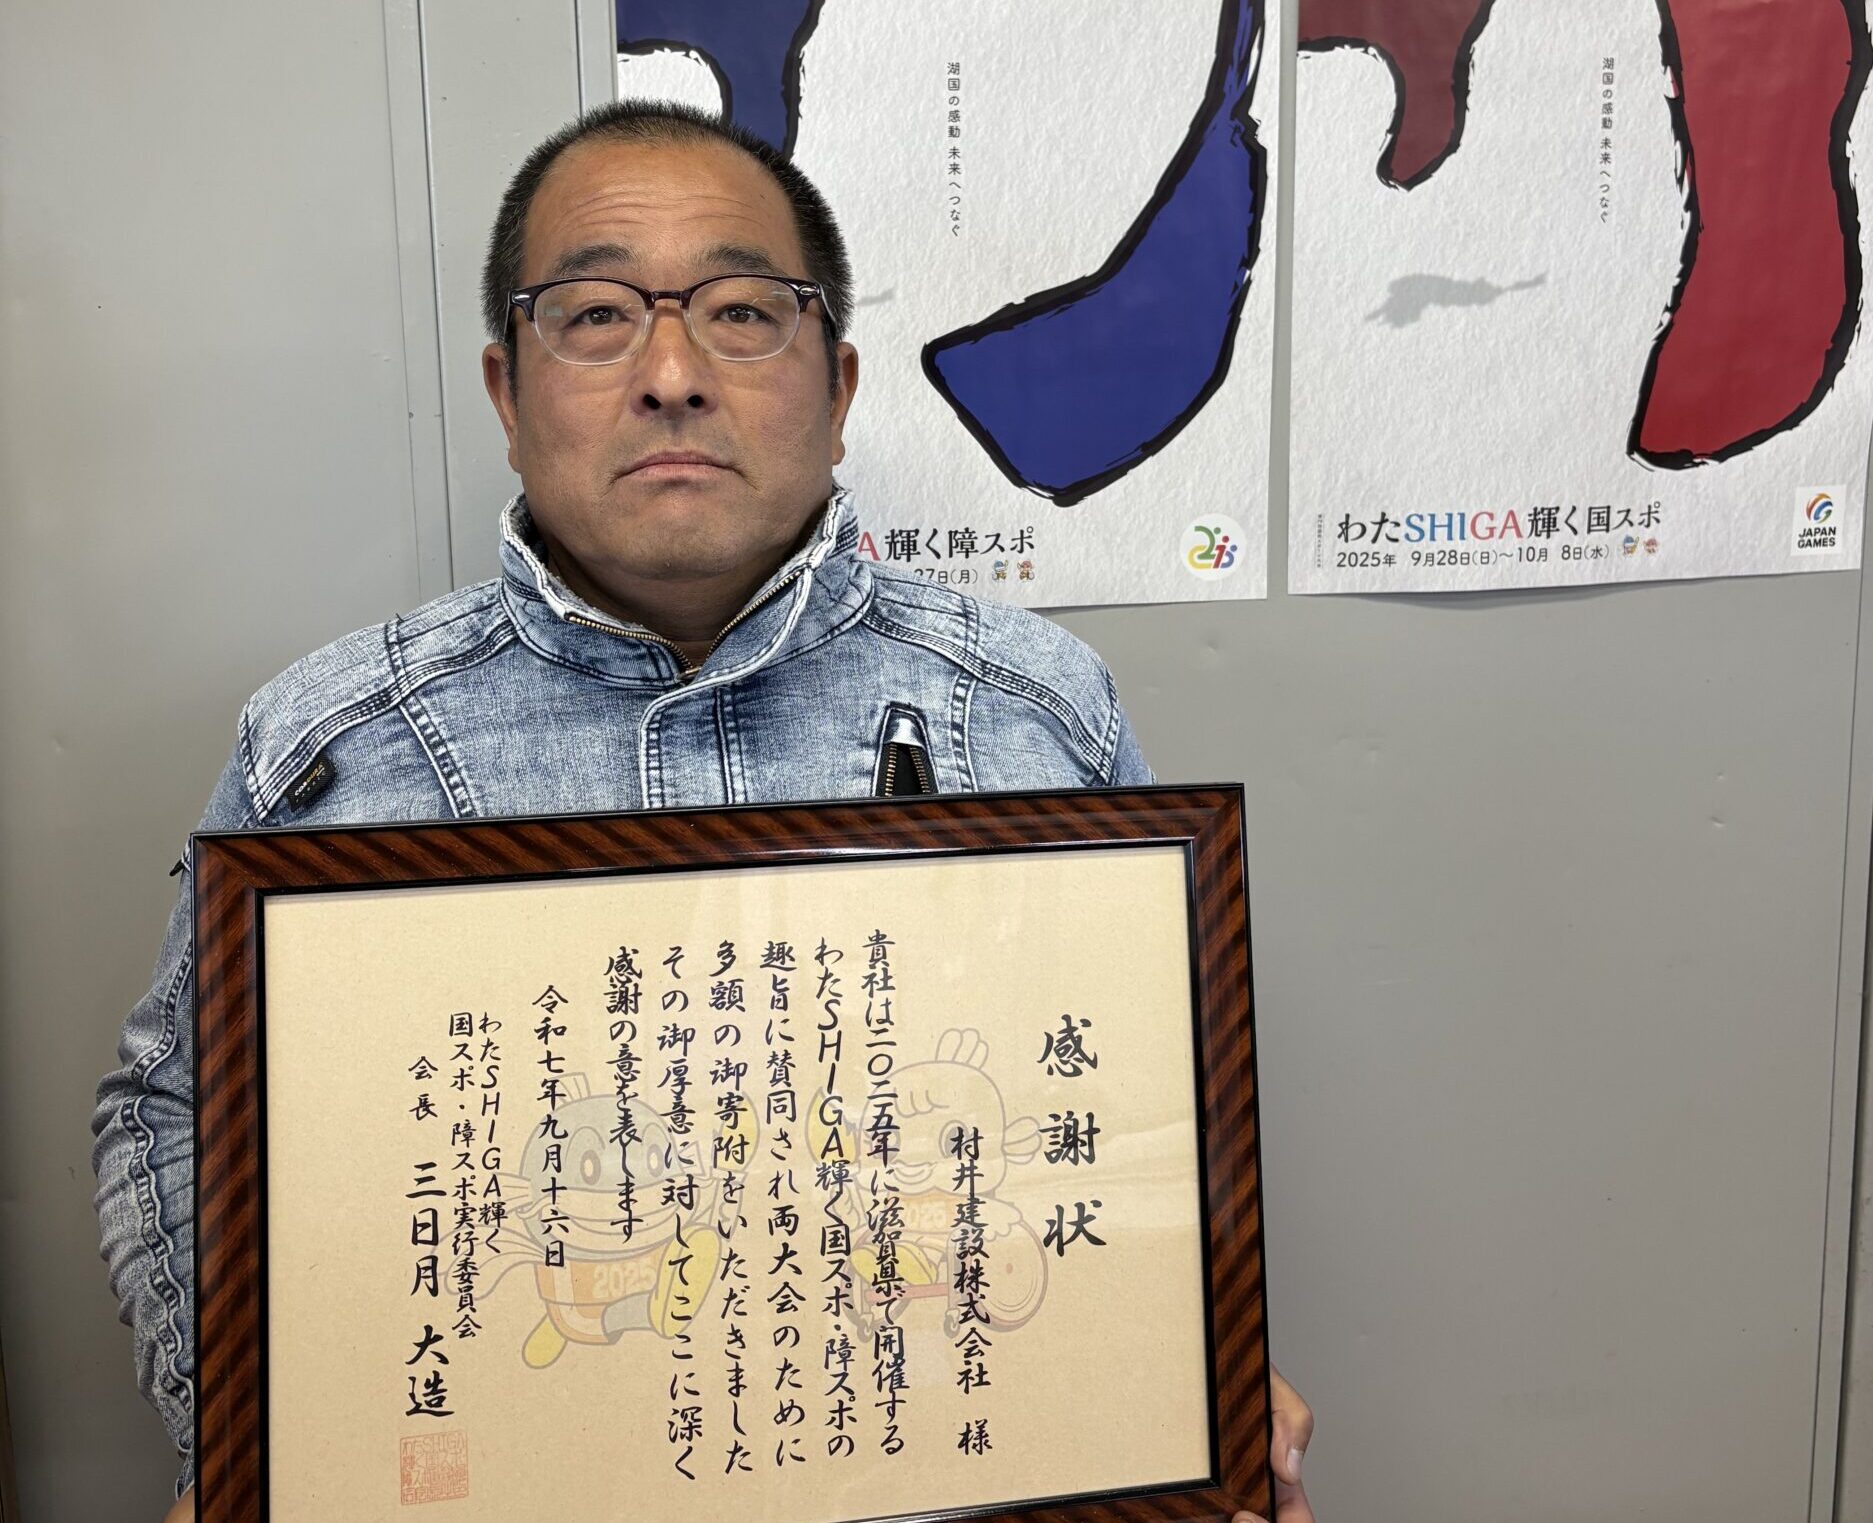 湖国の感動 未来へつなぐ
湖国の感動 未来へつなぐ
A輝く障スポ
27日(月)
わたSHIGA輝く国スポ
2025年 9月28日(日)〜10月 8日(水)
JAPAN
GAMES
感謝状
村井建設株式会社 様
貴社は二〇二五年に滋賀県で開催する
わたSHIGA輝く国スポ・障スポの
趣旨に賛同され両大会のために
多額の御寄附をいただきました
その御厚意に対してここに深く
感謝の意を表します
令和七年九月十六日
わたSHIGA輝く
国スポ・障スポ実行委員会
会長 三日月 大造
2025
2025